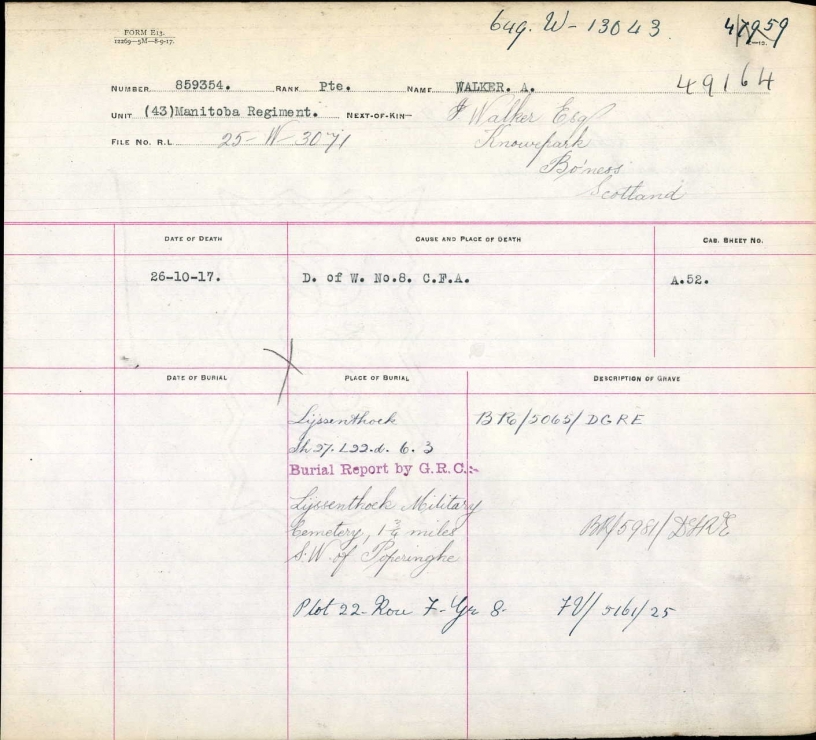 FORM E13.
12269—5M—8-9-17.
649. W-13043
49164
NUMBER 859354. RANK Pte. NAME WALKER. A.
UNIT (43)Manitoba Regiment. NEXT-OF-KIN— Walker Esq
Knowepark
Bo'ness
Scotland
FILE No. R.L. 25-W-3071
DATE OF DEATH CAUSE AND PLACE OF DEATH CAS. SHEET NO.
26-10-17. D. of W. No.8. C.F.A. A.52.
DATE OF BURIAL PLACE OF BURIAL DESCRIPTION OF GRAVE
Lijssenthoek BR6/5065/DGRE
Sh 27. L22.d. 6. 3
Burial Report by G.R.C.:-
Lijssenthoek Military
Cemetery, 1 3/4 miles BR/5981/DGRE
S.W. of Poperinghe
Plot 22- Row F- Gr 8- FV/5161/25